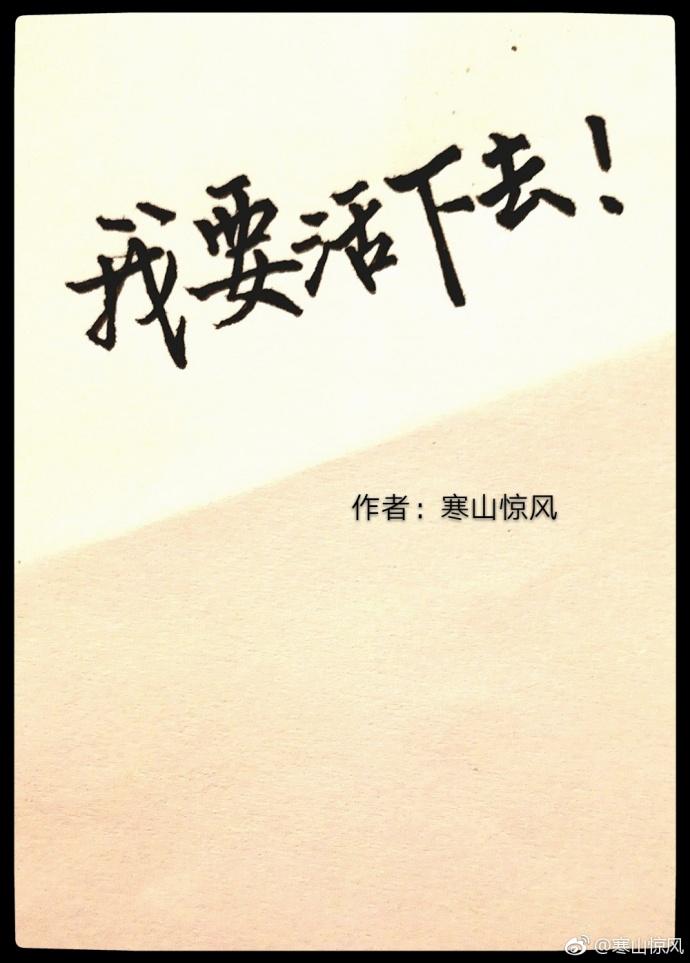 我要活下去！
作者：寒山惊风
@寒山惊风